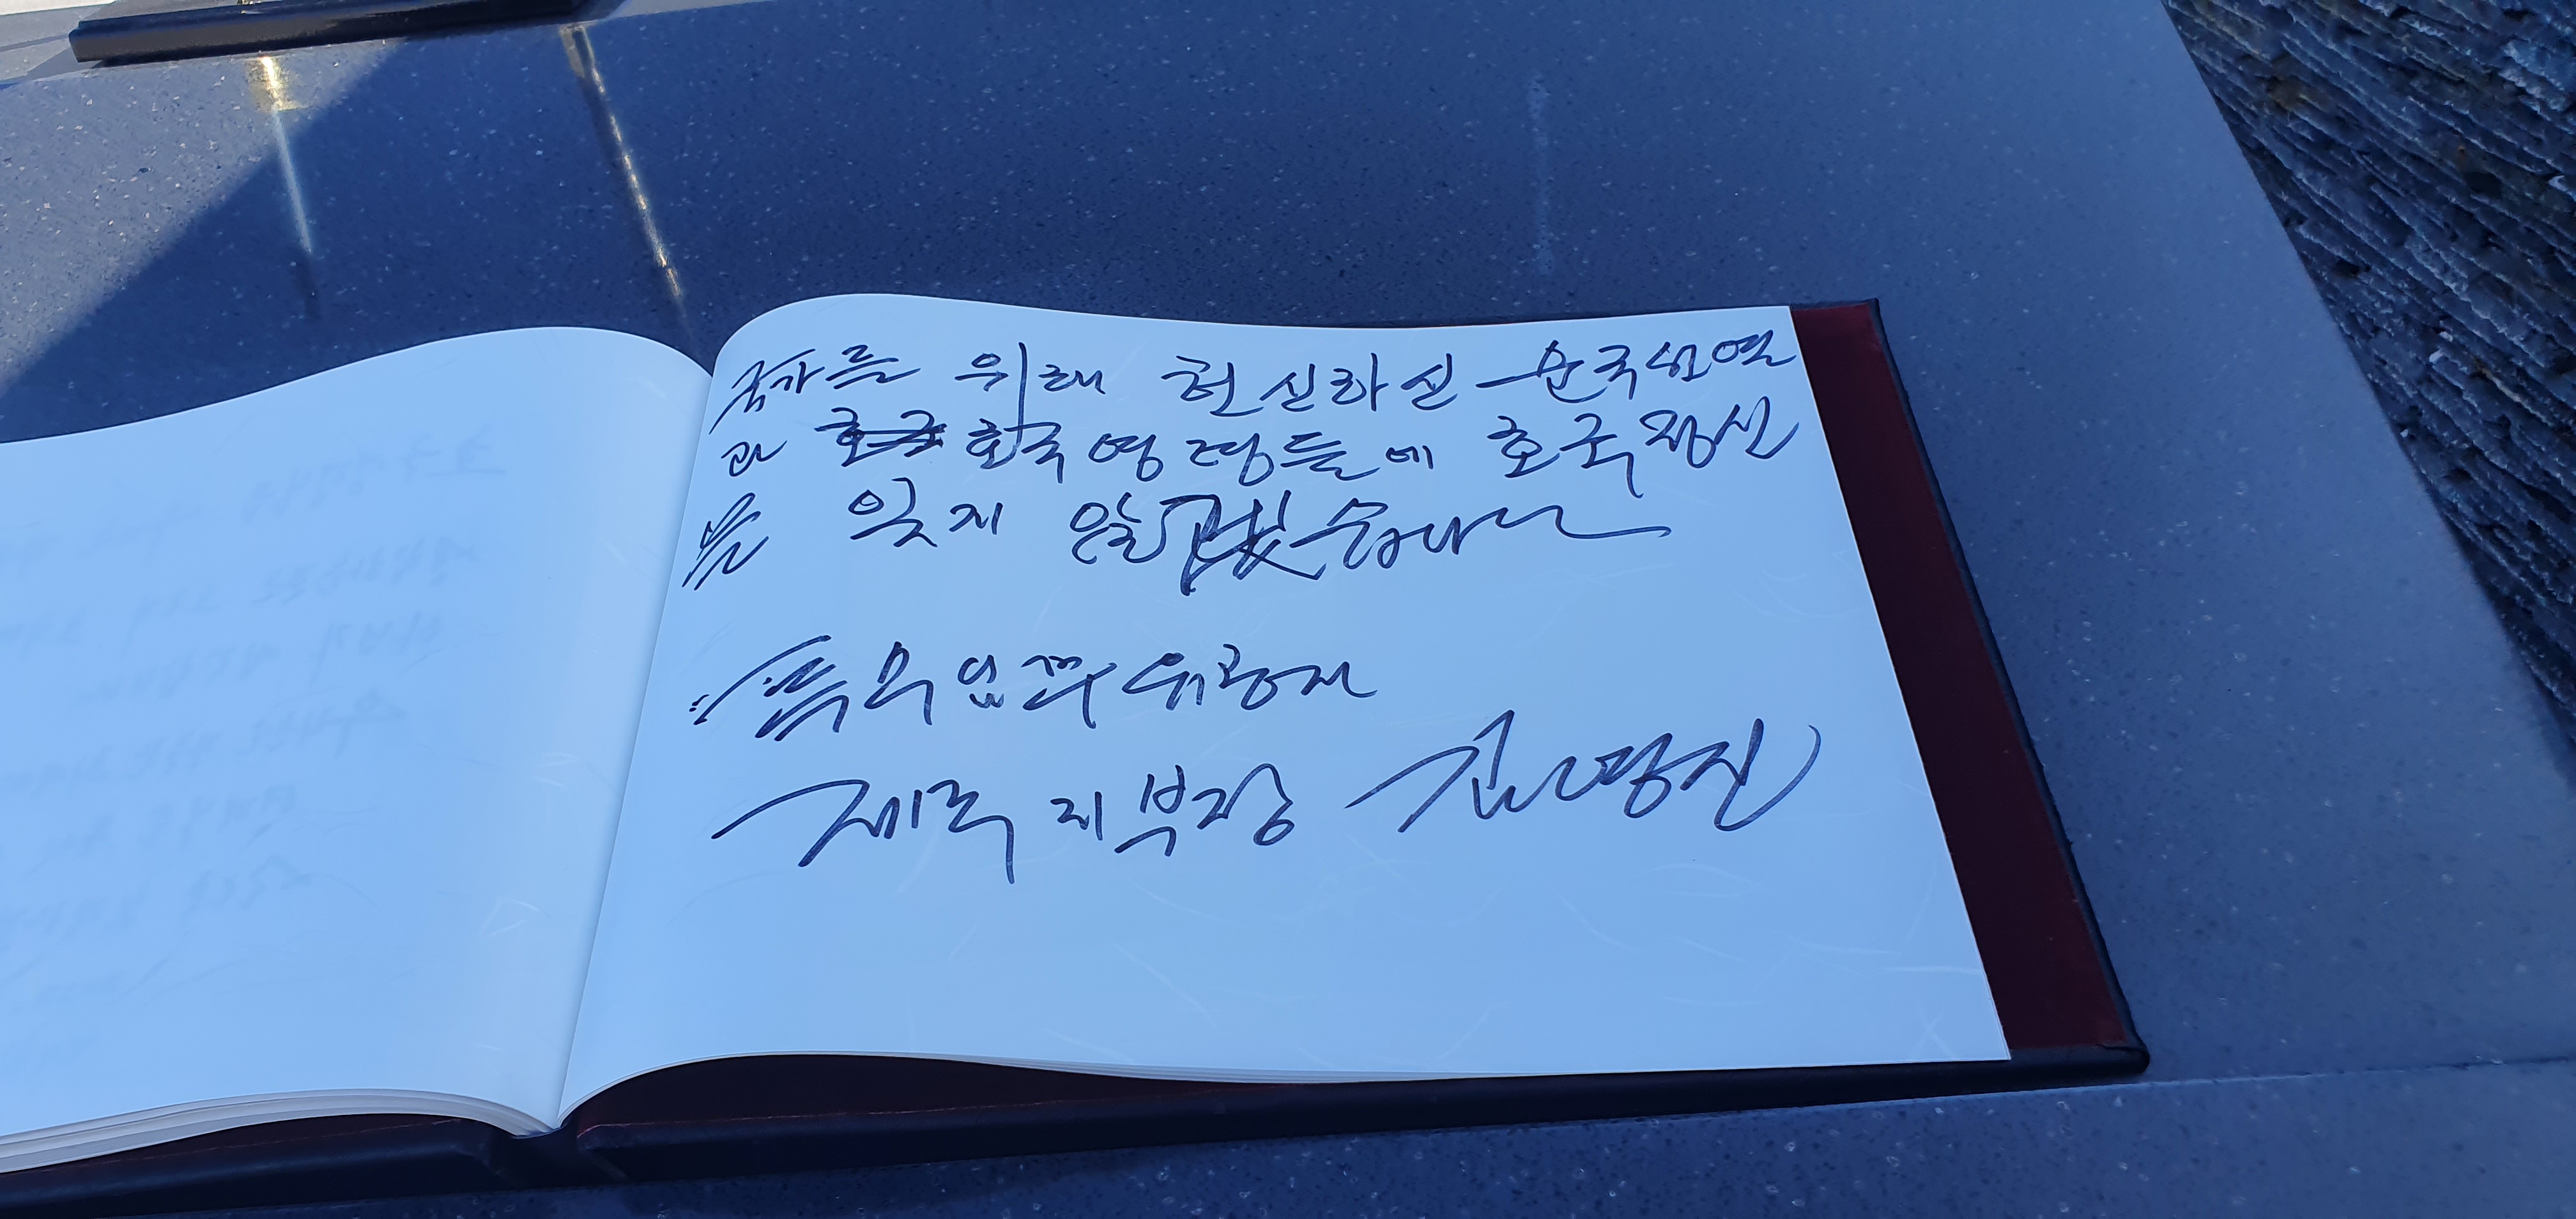 국가를 위해 헌신하신 순국선열
과 호국 호국영령들에 호국정신
을 잊지 않겠습니다
특수임무유공자
제주지부장 김영진